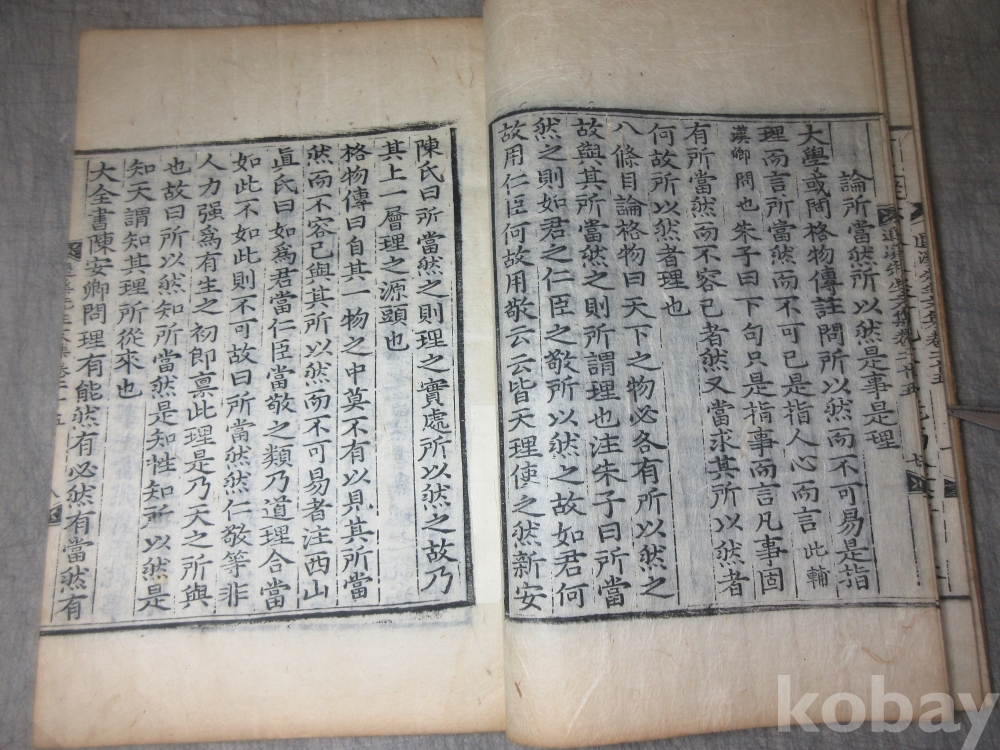 論所當然所以然是事是理
大學或問格物傳註問所以然而不可易是指
理而言所當然而不可已是指人心而言此輔
漢卿問也朱子曰下句只是指事而言凡事固
有所當然而不容已者然又當求其所以然者
何故所以然者理也
八條目論格物曰天下之物必各有所以然之
故與其所當然之則所謂理也注朱子曰所當
然之則如君之仁臣之敬所以然之故如君何
故用仁臣何故用敬云云皆天理使之然新安
陳氏曰所當然之則理之實處所以然之故乃
其上一層理之源頭也
格物傳曰自其一物之中莫不有以見其所當
然而不容已與其所以然而不可易者注西山
眞氏曰如爲君當仁臣當敬之類乃道理合當
如此不如此則不可故曰所當然然仁敬等非
人力强爲有生之初即禀此理是乃天之所與
也故曰所以然知所當然是知性知所以然是
知天謂知其理所從來也
大全書陳安卿問理有能然有必然有當然有
退溪先生文集卷二十五
八
kobay